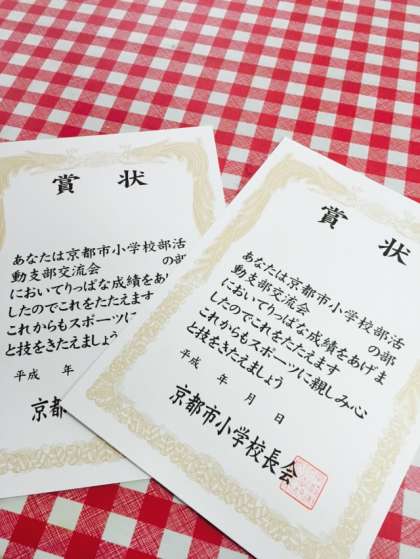 賞状
あなたは京都市小学校部活
動支部交流会 の部
においてりっぱな成績をあげ
したのでこれをたたえます
これからもスポーツに
と技をきたえましょう
平成 年
京都
賞状
あなたは京都市小学校部活
動支部交流会 の部
においてりっぱな成績をあげま
したのでこれをたたえます
これからもスポーツに親しみ心
と技をきたえましょう
平成 年 月 日
京都市小学校長会